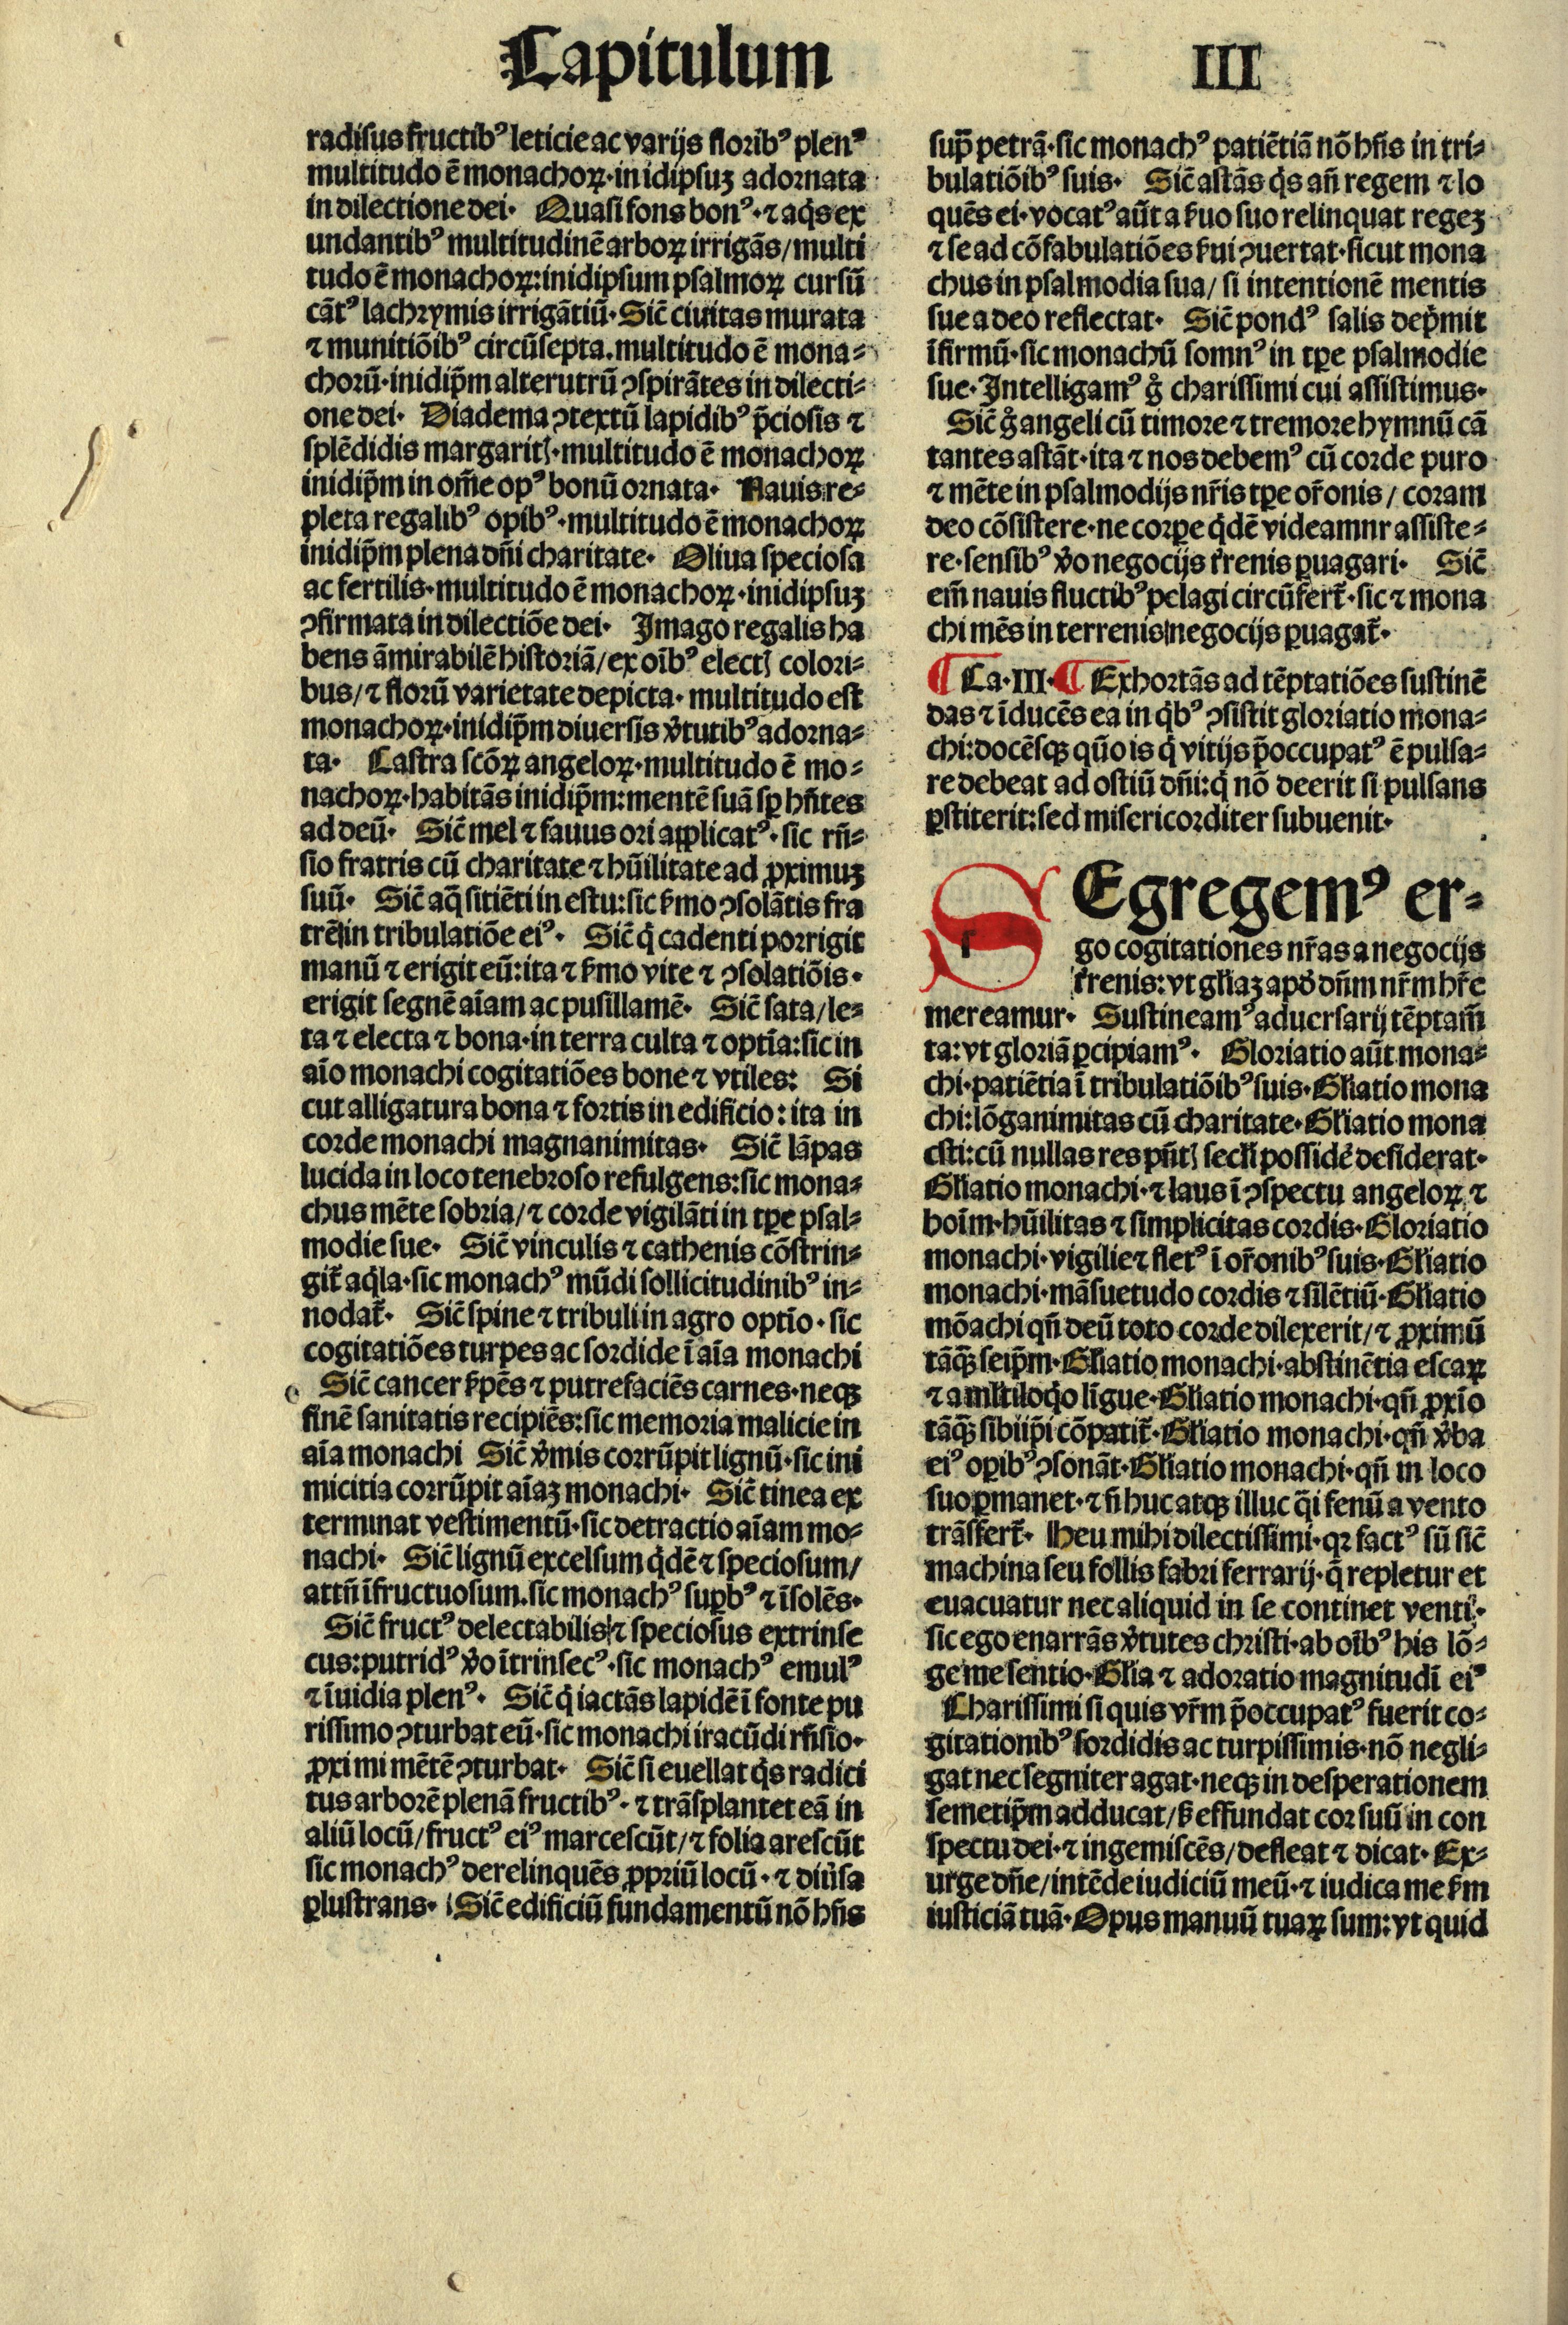 Capitulum III
radisus fructibꝰ leticie ac varijs floribꝰ plenꝰ
multitudo ē monachoꝝ·in idipsuꝫ adornata
in dilectione dei· Quasi fons bonꝰ·⁊ aq̈s ex
undantibꝰ multitudinē arboꝝ irrigās/multi
tudo ē monachoꝝ:inidipsum psalmoꝝ cursū
cātꝰ lachrymis irrigātiū· Sic̄ ciuitas murata
⁊ munitiōibꝰ circūsepta.multitudo ē mona-
chorū·inidip̄m alterutrū ꝯspirātes in dilecti-
one dei· Diadema ꝯtextū lapidibꝰ p̄ciosis ⁊
splēdidis margaritꝭ·multitudo ē monachoꝝ
inidip̄m in om̄e opꝰ bonū ornata· Nauis re-
pleta regalibꝰ opibꝰ·multitudo ē monachoꝝ
inidip̄m plena dn̄i charitate· Oliua speciosa
ac fertilis·multitudo ē monachoꝝ·inidipsuꝫ
ꝯfirmata in dilectiōe dei· Imago regalis ha
bens āmirabilē historiā/ex oībꝰ electꝭ colori-
bus/⁊ florū varietate depicta·multitudo est
monachoꝝ·inidip̄m diuersis v̓tutibꝰ adorna-
ta· Castra scōꝝ angeloꝝ·multitudo ē mo-
nachoꝝ·habitās inidip̄m:mentē suā sꝑ hn̄tes
ad deū· Sic̄ mel ⁊ fauus ori applicatꝰ·sic rn̄-
sio fratris cū charitate ⁊ hūilitate ad ꝓximuꝫ
suū· Sic̄ aq̄ sitiēti in estu:sic ẜmo ꝯsolātis fra
trē in tribulatiōe eiꝰ· Sic̄ q̇ cadenti porrigit
manū ⁊ erigit eū:ita ⁊ ẜmo vite ⁊ ꝯsolatiōis·
erigit segnē aīam ac pusillamē· Sic̄ sata/le-
ta ⁊ electa ⁊ bona·in terra culta ⁊ optīa:sic in
aīo monachi cogitatiōes bone ⁊ vtiles: Si
cut alligatura bona ⁊ fortis in edificio:ita in
corde monachi magnanimitas· Sic̄ lāpas
lucida in loco tenebroso refulgens:sic mona-
chus mēte sobria/⁊ corde vigilāti in tꝑe psal-
modie sue· Sic̄ vinculis ⁊ cathenis cōstrin-
git̄ aq̇la·sic monachꝰ mūdi sollicitudinibꝰ in-
nodat̄· Sic̄ spine ⁊ tribuli in agro optīo·sic
cogitatiōes turpes ac sordide ī aīa monachi
Sic̄ cancer ẜpēs ⁊ putrefaciēs carnes·neqꝫ
finē sanitatis recipiēs:sic memoria malicie in
aīa monachi Sic̄ v̓mis corrūpit lignū·sic ini
micitia corrūpit aīaꝫ monachi· Sic̄ tinea ex
terminat vestimentū·sic detractio aīam mo-
nachi· Sic̄ lignū excelsum q̇dē ⁊ speciosum/
attn̄ īfructuosum.sic monachꝰ suꝑbꝰ ⁊ īsolēs·
Sic̄ fructꝰ delectabilis ⁊ speciosus extrinse
cus:putridꝰ v̓o ītrinsecꝰ·sic monachꝰ emulꝰ
⁊ īuidia plenꝰ· Sic̄ q̇ iactās lapidē ī fonte pu
rissimo ꝯturbat eū·sic monachi iracūdi rn̄sio·
ꝓximi mētē ꝯturbat· Sic̄ si euellat q̇s radici
tus arborē plenā fructibꝰ·⁊ trāsplantet eā in
aliū locū/fructꝰ eiꝰ marcescūt/⁊ folia arescūt
sic monachꝰ derelinquēs ꝓpriū locū·⁊ diu̓sa
ꝑlustrans· Sic̄ edificiū fundamentū nō hn̄s
sup̄ petrā·sic monachꝰ patiētiā nō hn̄s in tri-
bulatiōibꝰ suis· Sic̄ astās q̇s an̄ regem ⁊ lo
quēs ei·vocatꝰ aūt a ẜuo suo relinquat regeꝫ
⁊ se ad cōfabulatiōes ẜui ꝯuertat·sicut mona
chus in psalmodia sua/si intentionē mentis
sue a deo reflectat· Sic̄ pondꝰ salis dep̄mit
īfirmū·sic monachū somnꝰ in tꝑe psalmodie
sue·Intelligamꝰ g̊ charissimi cui assistimus·
Sic̄ g̊ angeli cū timore ⁊ tremore hymnū cā
tantes astāt·ita ⁊ nos debemꝰ cū corde puro
⁊ mēte in psalmodijs nr̄is tꝑe or̄onis/coram
deo cōsistere·ne corꝑe q̇dē videamnr assiste-
re·sensibꝰ v̓o negocijs t̓renis ꝑuagari· Sic̄
em̄ nauis fluctibꝰ pelagi circūfert̄·sic ⁊ mona
chi mēs in terrenis negocijs ꝑuagat̄·
¶ Ca·III·¶ Exhortās ad tēptatiōes sustinē
das ⁊ īducēs ea in q̇bꝰ ꝯsistit gloriatio mona-
chi:docēsqꝫ quō is q̇ vitijs p̄occupatꝰ ē pulsa-
re debeat ad ostiū dn̄i:q̇ nō deerit si pulsans
ꝑstiterit:sed misericorditer subuenit·
SEgregemꝰ er-
go cogitationes nr̄as a negocijs
t̓renis:vt gl̄iaꝫ apd̓ dn̄m nr̄m hr̄e
mereamur· Sustineamꝰ aduersarij tēptam̄
ta:vt gloriā ꝑcipiamꝰ· Gloriatio aūt mona-
chi·patiētia ī tribulatiōibꝰ suis·Gl̄iatio mona
chi:lōganimitas cū charitate·Gl̄iatio mona
csti:cū nullas res pn̄tꝭ secl̄i possidē desiderat·
Gl̄iatio monachi·⁊ laus ī ꝯspectu angeloꝝ ⁊
hoīm·hūilitas ⁊ simplicitas cordis·Gloriatio
monachi·vigilie ⁊ fletꝰ ī or̄onibꝰ suis·Gl̄iatio
monachi·māsuetudo cordis ⁊ silētiū·Gl̄iatio
mōachi qn̄ deū toto corde dilexerit/⁊ ꝓximū
tāqꝫ̄ seip̄m·Gl̄iatio monachi·abstinētia escaꝝ
⁊ a ml̄tiloq̇o līgue·Gl̄iatio monachi·qn̄ ꝓxīo
tāqꝫ̄ sibiip̄i cōpatit̄·Gl̄iatio monachi·qn̄ v̓ba
eiꝰ oꝑibꝰ ꝯsonāt·Gl̄iatio monachi·qn̄ in loco
suo ꝑmanet·⁊ n̄ huc atqꝫ illuc q̄i fenū a vento
trāsfert̄· Heu mihi dilectissimi·qꝛ factꝰ sū sic̄
machina seu follis fabri ferrarij·q̄ repletur et
euacuatur nec aliquid in se continet venti·
sic ego enarrās v̓tutes christi·ab oībꝰ his lō-
ge me sentio·Gl̄ia ⁊ adoratio magnitudī eiꝰ
Charissimi si quis vr̄m p̄occupatꝰ fuerit co-
gitationibꝰ sordidis ac turpissimis·nō negli-
gat nec segniter agat·neqꝫ in desperationem
semetip̄m adducat/ẜ effundat cor suū in con
spectu dei·⁊ ingemiscēs/defleat ⁊ dicat· Ex-
urge dn̄e/intēde iudiciū meū·⁊ iudica me ẜm
iusticiā tuā·Opus manuū tuaꝝ sum:vt quid